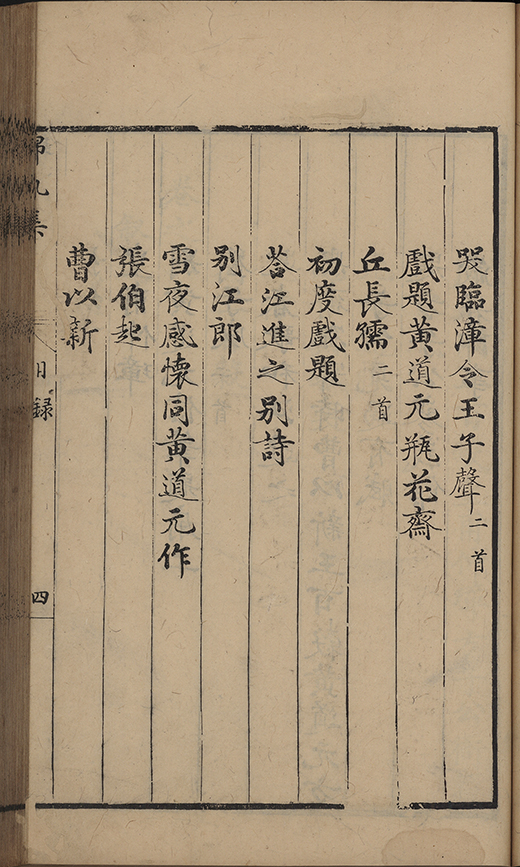 哭臨漳令王子聲二首
戲題黃道元瓶花齋
丘長孺二首
初度戲題
荅江進之別詩
別江郎
雪夜感懷同黃道元作
張伯起
曹以新
錦帆集
目錄
四